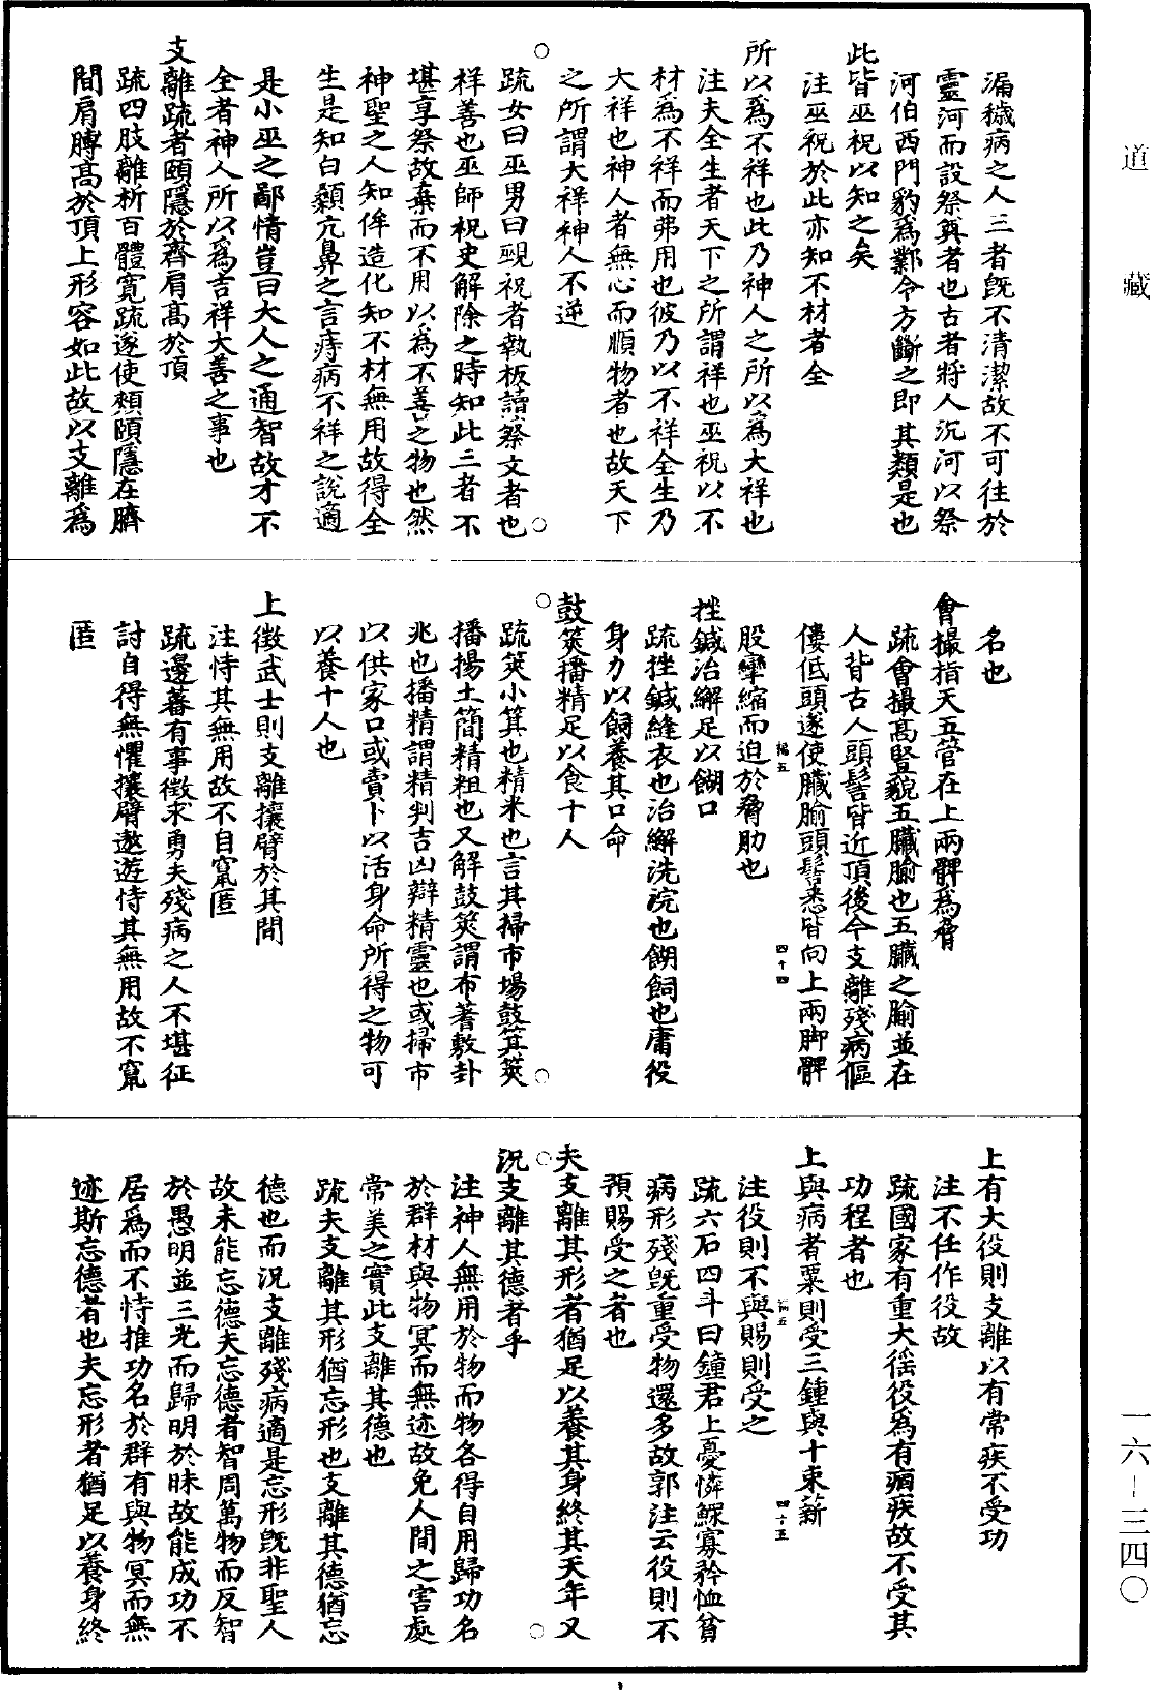 道藏
漏穢病之人三者旣不清潔故不可往於
靈河而設祭奠者也古者將人沉河以祭
河伯西門豹爲鄴令方斷之即其類是也
此皆巫祝以知之矣
注巫祝於此亦知不材者全
所以爲不祥也此乃神人之所以爲大祥也
注夫全生者天下之所謂祥也巫祝以不
材爲不祥而弗用也彼乃以不祥全生乃
大祥也神人者無心而順物者也故天下
之所謂大祥神人不逆
疏女曰巫男曰覡祝者執板讀祭文者也
祥善也巫師祝史解除之時知此三者不
堪享祭故棄而不用以爲不善之物也然
神聖之人知侔造化知不材無用故得全
生是知白顙亢鼻之言痔病不祥之說適
是小巫之鄙情豈曰大人之通智故才不
全者神人所以爲吉祥大善之事也
支離疏者頤隱於齊肩高於頂
疏四肢離析百體寬疏遂使頰頤隱在臍
間肩膊高於頂上形容如此故以支離爲
名也
會撮指天五管在上兩髀爲脅
疏會撮高豎貌五臟腧也五臟之腧並在
人背古人頭髻皆近頂後今支離殘病傴
僂低頭遂使臟腧頭髻悉皆向上兩脚髀
股攣縮而迫於脅肋也
挫鍼治繲足以餬口
疏挫鍼縫衣也治繲洗浣也餬飼也庸役
身力以飼養其口命
鼓筴播精足以食十人
疏筴小箕也精米也言其掃市場鼓箕筴
播揚土簡精粗也又解鼓筴謂布蓍敷卦
兆也播精謂精判吉凶辯精靈也或掃市
以供家口或賣卜以活身命所得之物可
以養十人也
上徵武士則支離攘臂於其間
注恃其無用故不自竄匿
疏邊蕃有事徵求勇夫殘病之人不堪征
討自得無懼攘臂遨遊恃其無用故不竄
匿
上有大役則支離以有常疾不受功
注不任作役故
疏國家有重大徭役爲有痼疾故不受其
功程者也
上與病者粟則受三鍾與十束薪
注役則不與賜則受之
疏六石四斗曰鍾君上憂憐鰥寡矜恤貧
病形殘旣重受物還多故郭注云役則不
預賜受之者也
夫支離其形者猶足以養其身終其天年又
況支離其德者乎
注神人無用於物而物各得自用歸功名
於群材與物冥而無迹故免人間之害處
常美之實此支離其德也
疏夫支離其形猶忘形也支離其德猶忘
德也而況支離殘病適是忘形旣非聖人
故未能忘德夫忘德者智周萬物而反智
於愚明並三光而歸明於昧故能成功不
居爲而不恃推功名於群有與物冥而無
迹斯忘德者也夫忘形者猶足以養身終
一六-三四〇